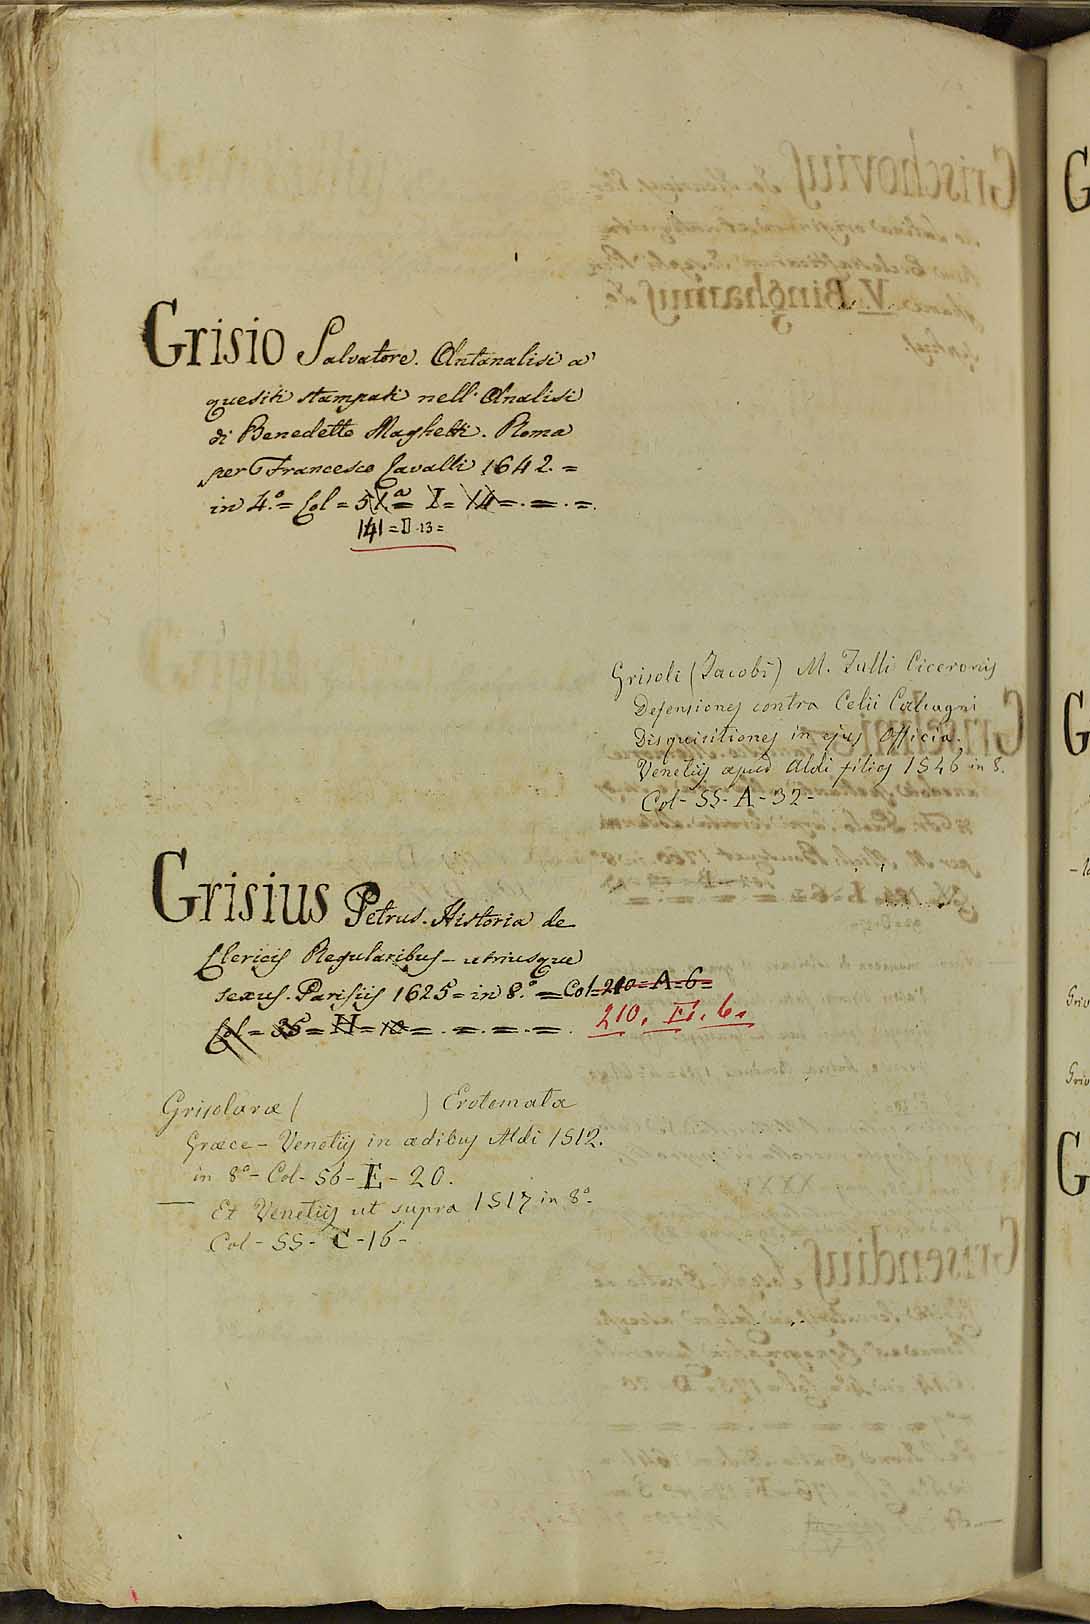 Grisio Salvatore. Antanalisi a'
quesiti stampati nell' Analisi
di Benedetto Maghetti. Roma
per Francesco Cavalli 1642. =
in 4.º = Col = 51.ª = I = 14 = . = . =.
141 = D. 13 =
Grisoli (Jacobi) M. Tulli Ciceronis
Defensiones contra Celii Calcagni
Disquisitiones in ejus Officia.
Venetiis apud Aldi filios 1546 in 8.
Col - 55 - A - 32 -
Grisius Petrus. Historia de
Clericis Regularibus - utriusque
sexus. Parisiis 1625 = in 8.º = Col = 210 = A = 6 =
Col = 35 = H = 10 = . = . = . = .
210. . 6.
Grisolaræ ( ) Erotemata
Græce - Venetiis in ædibus Aldi 1512.
in 8º - Col - 56 - E - 20.
— Et Venetiis ut supra 1517 in 8º -
Col - 55 - C - 16 -